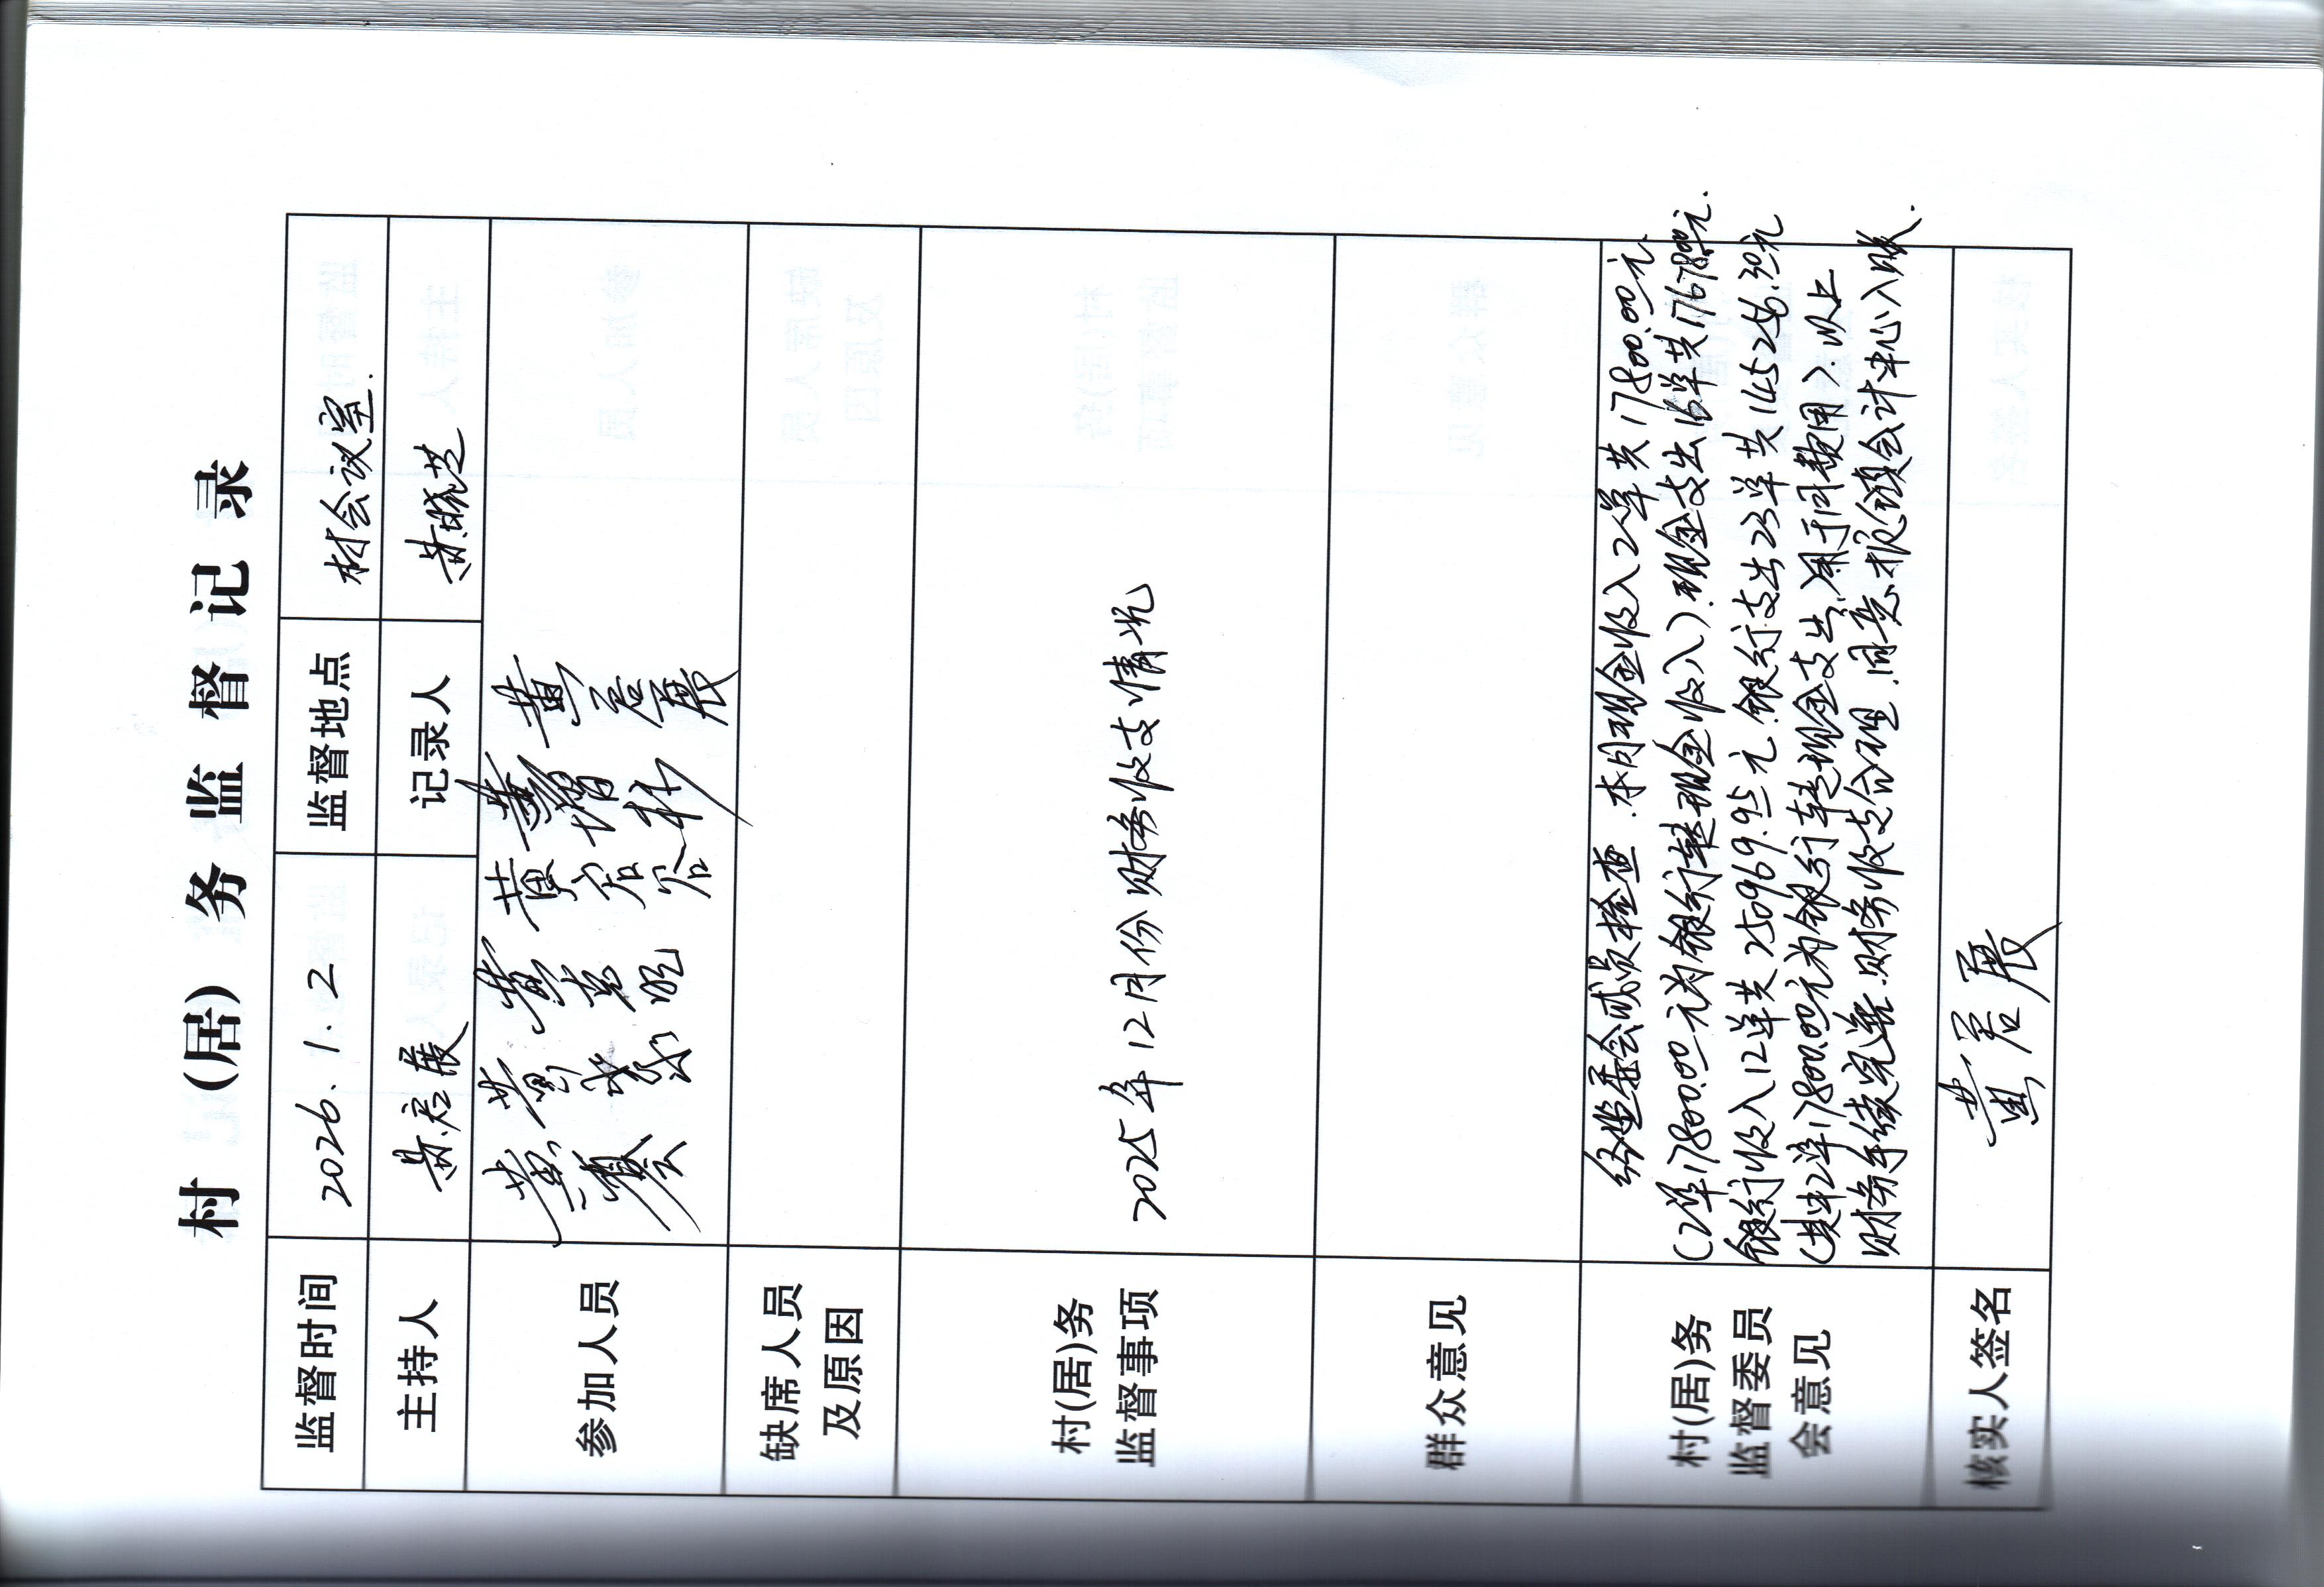 村(居)务监督记录
监督时间 2026、1.2 监督地点 村会议室.
主持人 记录人
参加人员
缺席人员
及原因
村(居)务
监督事项
2025年12月份财务收支情况
群众意见
村(居)务
监督委员
会意见
经监委会成员检查.本月现金收入2单共17800.00元
(2单17800.00元为银行转现金收入).现金支出16单共17678.00元.
银行收入12单共250969.95元.银行支出23单共145256.30元
(其中2单17800.00元为银行转现金支出.用于同款用).以上
财务手续完善.财务收支合理.同意报镇会计中心入账.
核实人签名 黄君展